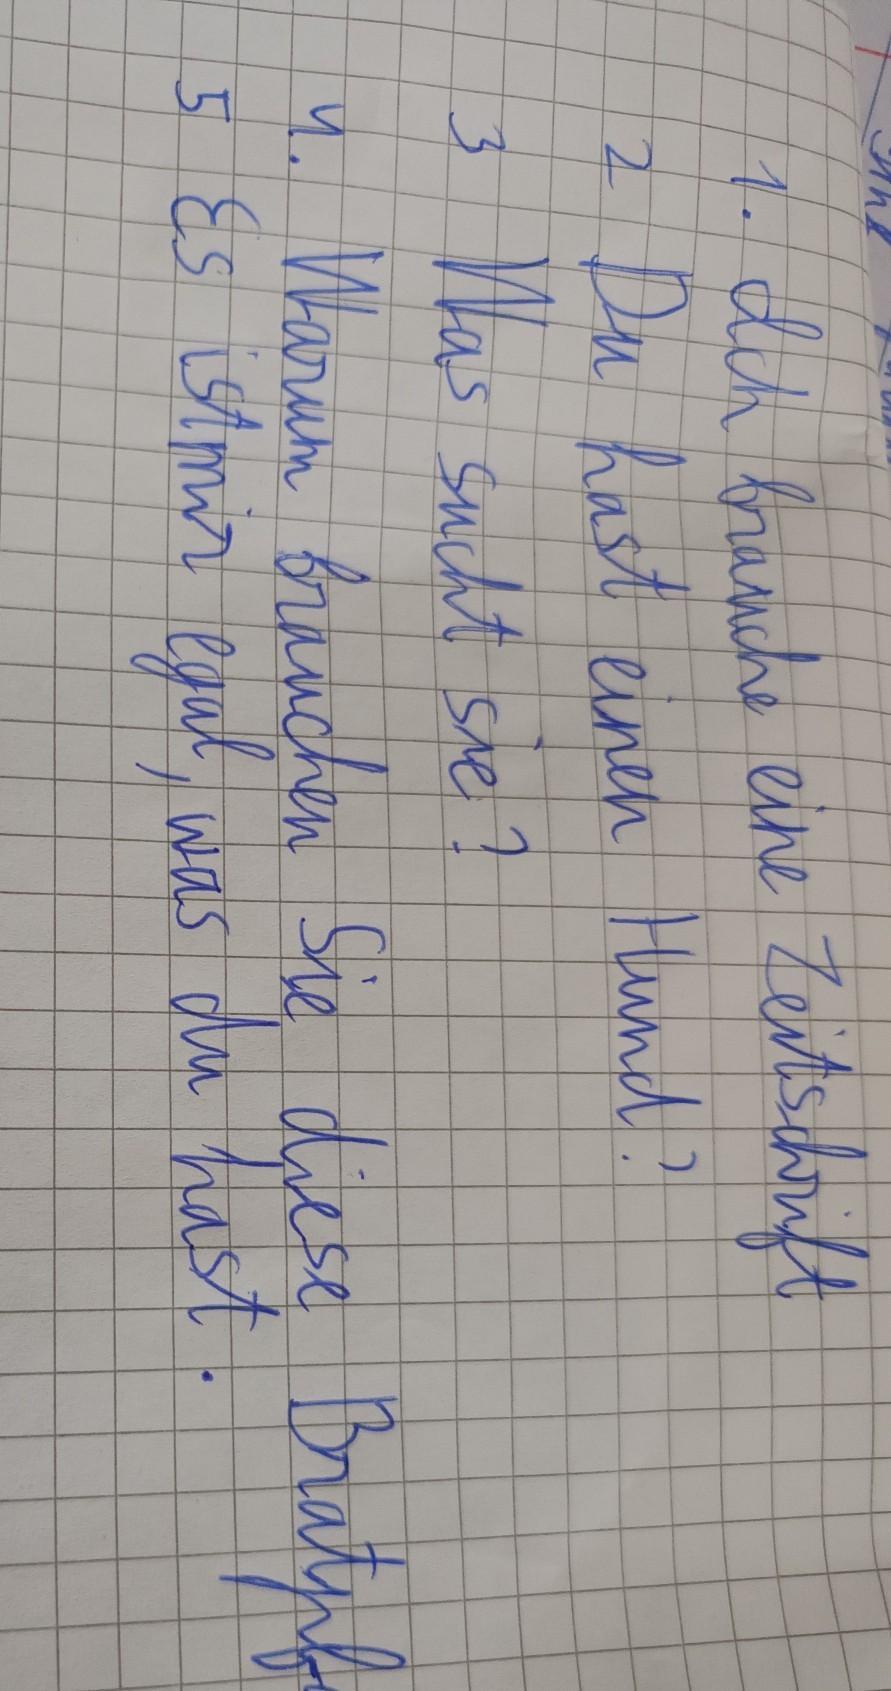 1. Ich brauche eine Zeitschrift
2 Du hast einen Hund?
3 Was sucht sie?
4. Warum brauchen Sie diese
5 Es ist mir egal, was du hast.